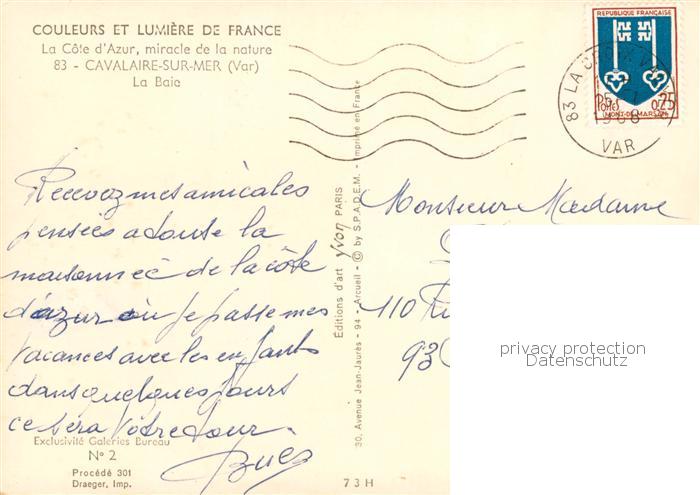 COULEURS ET LUMIÈRE DE FRANCE
La Côte d'Azur, miracle de la nature
83 - CAVALAIRE-SUR-MER (Var)
La Baie
Recevez mes amicales
pensées a toute la
maisonneé de la côte
d'azur où je passe mes
vacances avec les enfants
dans quelques jours
ce sera votre tour.
Exclusivité Galeries Bureau
N° 2
Procédé 301
Draeger, Imp.
Éditions d'art yvon PARIS
30, Avenue Jean-Jaurès - 94 - Arcueil - © by S.P.A.D.E.M. - Imprimé en France
73H
REPUBLIQUE FRANÇAISE
POSTES 0,25
MONT-DE-MARSAN
83 LA CROIX VAL
VAR
Monsieur Madame
110
93
privacy protection
Datenschutz